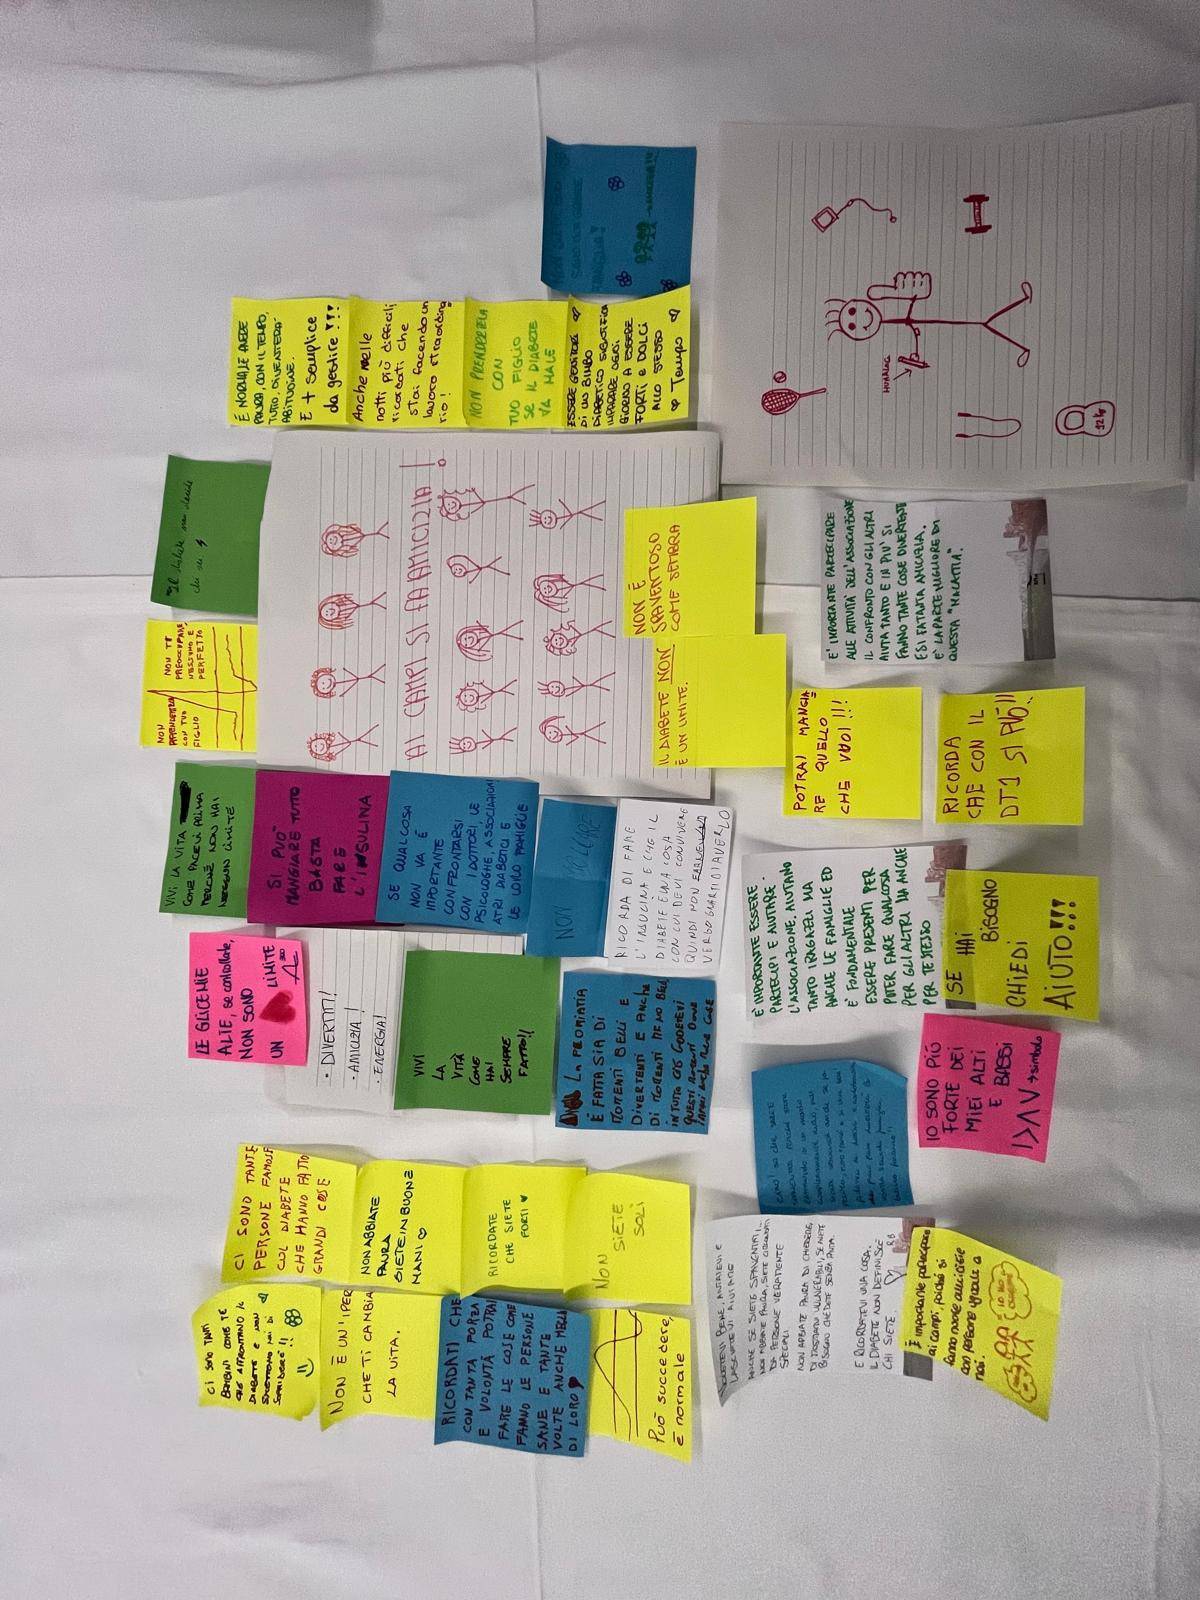 CI SONO TANTI
BAMBINI COME TE
CHE AFFRONTANO IL
DIABETE E NON
SMETTONO MAI DI
SORRIDERE !!
NON È UN' IPER
CHE TI CAMBIA
LA VITA.
RICORDATI CHE
CON TANTA FORZA
E VOLONTÀ POTRAI
FARE LE COSE COME
FANNO LE PERSONE
SANE E TANTE
VOLTE ANCHE MEGLIO
DI LORO
Può succedere,
è normale
CI SONO TANTE
PERSONE FAMOSE
COL DIABETE
CHE HANNO FATTO
GRANDI COSE
NON ABBIATE
PAURA
SIETE IN BUONE
MANI
RICORDATE
CHE SIETE
FORTI
NON SIETE
SOLI
LE GLICEMIE
ALTE, se controllate,
NON SONO
UN LIMITE
• DIVERTITI!
• AMICIZIA!
• ENERGIA!
VIVI
LA
VITÀ
COME
HAI
SEMPRE
FATTO!!
LA PRONIATIA
È FATTA SIA DI
MOMENTI BELLI E
DIVERTENTI E ANCHE
DI MOMENTI MENO BELLI
VIVI LA VITA
COME FACEVI PRIMA
PERCHÉ NON HAI
NESSUN LIMITE
SI PUÒ
MANGIARE TUTTO
BASTA
FARE
L'INSULINA
SE QUALCOSA
NON VA È
IMPORTANTE
CONFRONTARSI
CON I DOTTORI, LE
PSICOLOGHE, ASSOCIAZIONI
ATRI DIABETICI E
LE LORO FAMIGLIE
NON MOLLARE
RICORDA DI FARE
L'INSULINA E CHE IL
DIABETE È UNA COSA
CON CUI DEVI CONVIVERE
QUINDI NON
VERGOGNARTI DI AVERLO
NON
PRENDERTELA
CON TUO
FIGLIO
NON TI
PREOCCUPARE,
NESSUNO È
PERFETTO
"Il diabete non decide
chi sei
AI CAMPI SI FA AMICIZIA!
IL DIABETE NON
È UN LIMITE.
NON È
SPAVENTOSO
COME SEMBRA
È NORMALE AVERE
PAURA, CON IL TEMPO,
TUTTO, DIVENTERÀ,
ABITUDINE.
E + semplice
da gestire !!!
Anche nelle
notti più difficili
ricordati che
stai facendo un
lavoro straordina
rio!
NON PRENDERTELA
CON
TUO FIGLIO
SE IL DIABETE
VA MALE
ESSERE GENITORI
DI UN BIMBO
DIABETICO SIGNIFICA
IMPARARE OGNI
GIORNO A ESSERE
FORTI E DOLCI
ALLO STESSO
Tempo
NOLETEVI BENE, AMATEVI E
LASCIATEVI AIUTARE
ANCHE SE SIETE SPAVENTATI...
NON ABBIATE PAURA, SIETE CIRCONDATI
DA PERSONE VERAMENTE
SPECIALI
NON ABBIATE PAURA DI CHIEDERE,
DI MOSTRARVI VULNERABILI, SE AVETE
BISOGNO CHIEDETE SENZA PAURA.
E RICORDATEVI UNA COSA,
IL DIABETE NON DEFINISCE
CHI SIETE.
È importante partecipare
ai campi, poiché si
fanno nuove amicizie
con persone uguali a
noi.
IO SONO PIÙ
FORTE DEI
MIEI ALTI
E BASSI
I > Λ V → simbolo
E' IMPORTANTE ESSERE
PARTECIPI E AIUTARE.
L'ASSOCIAZIONE, AIUTANO
TANTO I RAGAZZI MA
ANCHE LE FAMIGLIE ED
È FONDAMENTALE
ESSERE PRESENTI PER
POTER FARE QUALCOSA
PER GLI ALTRI MA ANCHE
PER TE STESSO
SE HAI
BISOGNO
CHIEDI
AIUTO!!!
POTRAI MANGIA
RE QUELLO
CHE VUOI!!!
RICORDA
CHE CON IL
DT1 SI PUÒ!!
E' IMPORTANTE PARTECIPARE
ALLE ATTIVITÀ DELL'ASSOCIAZIONE
IL CONFRONTO CON GLI ALTRI
AIUTA TANTO E IN PIÙ SI
FANNO TANTE COSE DIVERTENTI
E SI FA TANTA AMICIZIA.
È LA PARTE MIGLIORE DI
QUESTA "MALATTIA".
HUMALOG
12kg